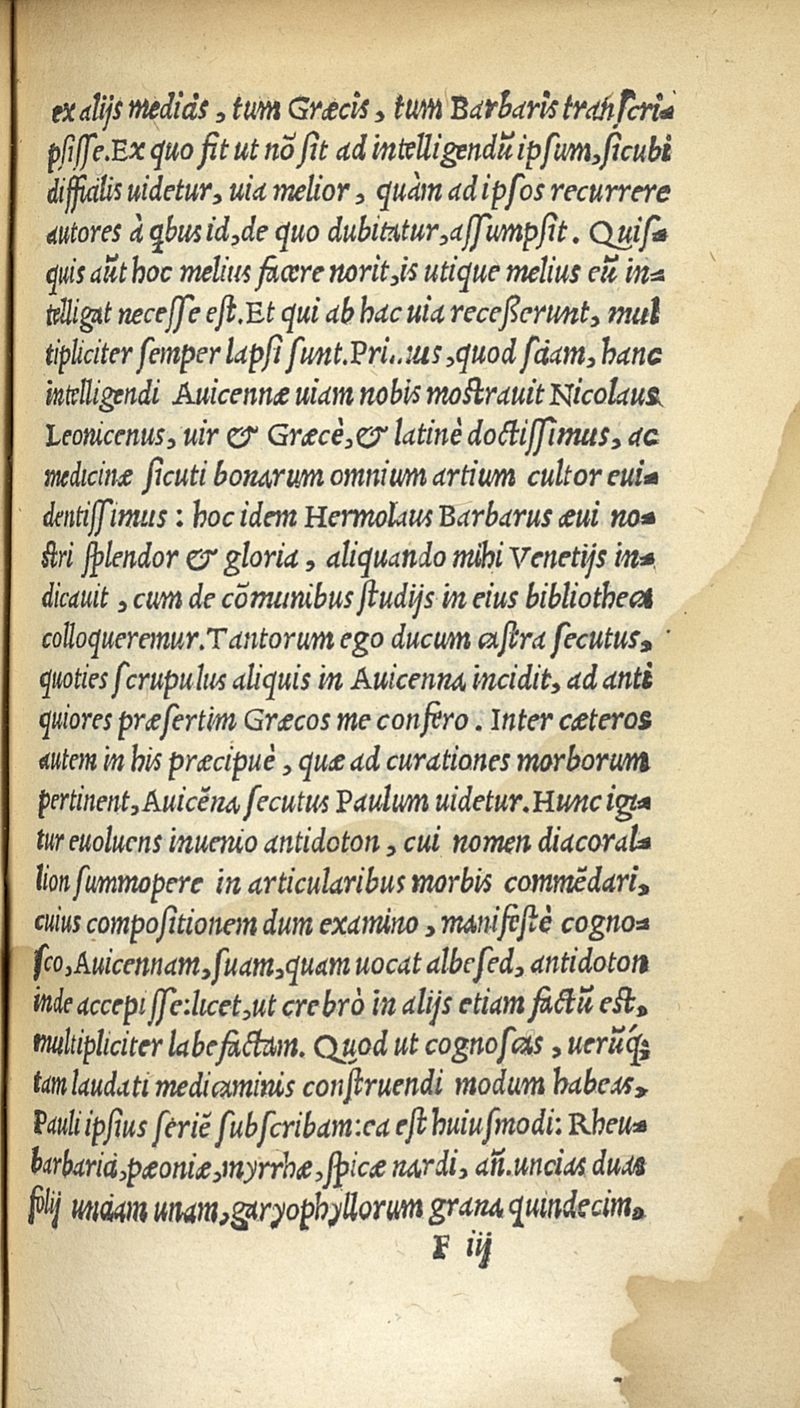 ex alijs medicis, tum Græcis, tum Barbaris transcri-
psisse. Ex quo fit ut nõ sit ad intelligendũ ipsum, sicubi
difficilis uidetur, uia melior, quàm ad ipsos recurrere
autores à qbus id, de quo dubitatur, assumpsit. Quis-
quis aũt hoc melius facere norit, is utique melius eũ in-
telligat necesse est. Et qui ab hac uia recesserunt, mul
tipliciter semper lapsi sunt. Primus, quod sciam, hanc
intelligendi Auicennæ uiam nobis mostrauit Nicolaus
Leonicenus, uir & Græcè, & latinè doctissimus, ac
medicinæ sicuti bonarum omnium artium cultor eui-
dentissimus: hoc idem Hermolaus Barbarus æui no-
stri splendor & gloria, aliquando mihi Venetijs in-
dicauit, cum de cõmunibus studijs in eius bibliotheca
colloqueremur. Tantorum ego ducum castra secutus,
quoties scrupulus aliquis in Auicenna incidit, ad anti
quiores præsertim Græcos me confero. Inter cæteros
autem in his præcipuè, quæ ad curationes morborum
pertinent, Auicẽna secutus Paulum uidetur. Hunc igi-
tur euoluens inuenio antidoton, cui nomen diacoral-
lion summopere in articularibus morbis commẽdari,
cuius compositionem dum examino, manifestè cogno-
sco, Auicennam, suam, quam uocat albesed, antidoton
inde accepisse: licet, ut crebrò in alijs etiam factũ est,
multipliciter labefactam. Quod ut cognoscas, uerũq́;
tam laudati medicaminis construendi modum habeas,
Pauli ipsius seriẽ subscribam: ea est huiusmodi: Rheu-
barbarici, pæoniæ, myrrhæ, spicæ nardi, añ. uncias duas
folij unciam unam, garyophyllorum grana quindecim,
F iij